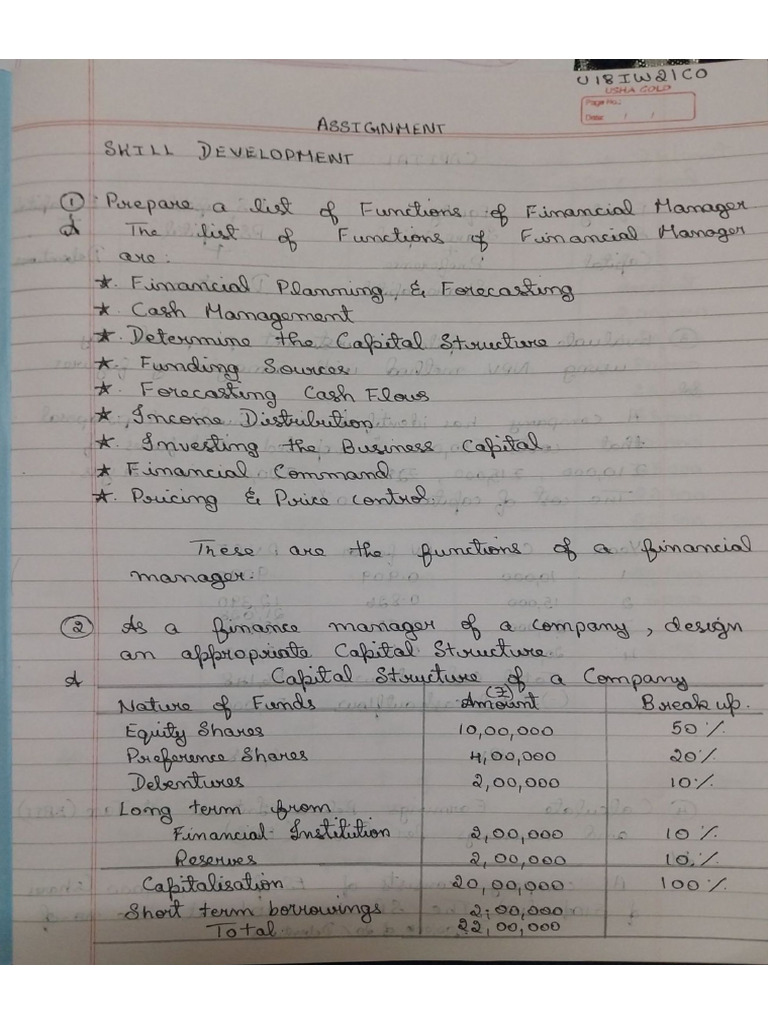 U18IW21C0
USHA GOLD
Page No.:
Date: / /
ASSIGNMENT
SKILL DEVELOPMENT
① Prepare a list of Functions of Financial Manager
A The list of Functions of Financial Manager
are:
* Financial Planning & Forecasting
* Cash Management
* Determine the Capital Structure
* Funding Sources
* Forecasting Cash Flows
* Income Distribution
* Investing the Business Capital
* Financial Command
* Pricing & Price control
These are the functions of a financial
manager.
② As a finance manager of a company, design
an appropriate Capital Structure.
A Capital Structure of a Company
Nature of Funds Amount (₹) Break up.
Equity Shares 10,00,000 50%
Preference Shares 4,00,000 20%
Debentures 2,00,000 10%
Long term from
Financial Institution 2,00,000 10%
Reserves 2,00,000 10%
Capitalisation 20,00,000 100%
Short term borrowings 2,00,000
Total 22,00,000